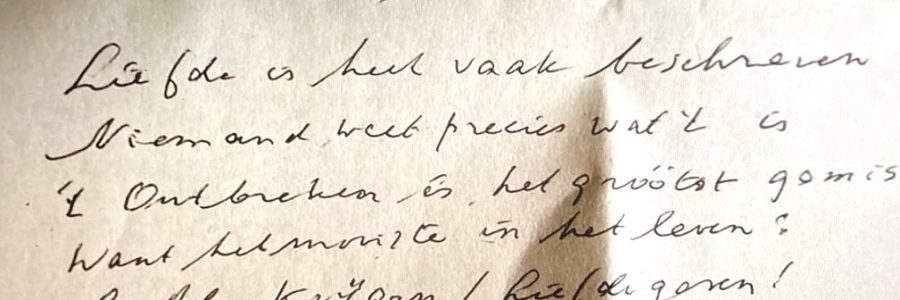 Liefde is heel vaak beschreven
Niemand weet precies wat 't is
't Ontbreken is het gróótst gemis
Want het mooiste in het leven :
Liefde krijgen / liefde geven !